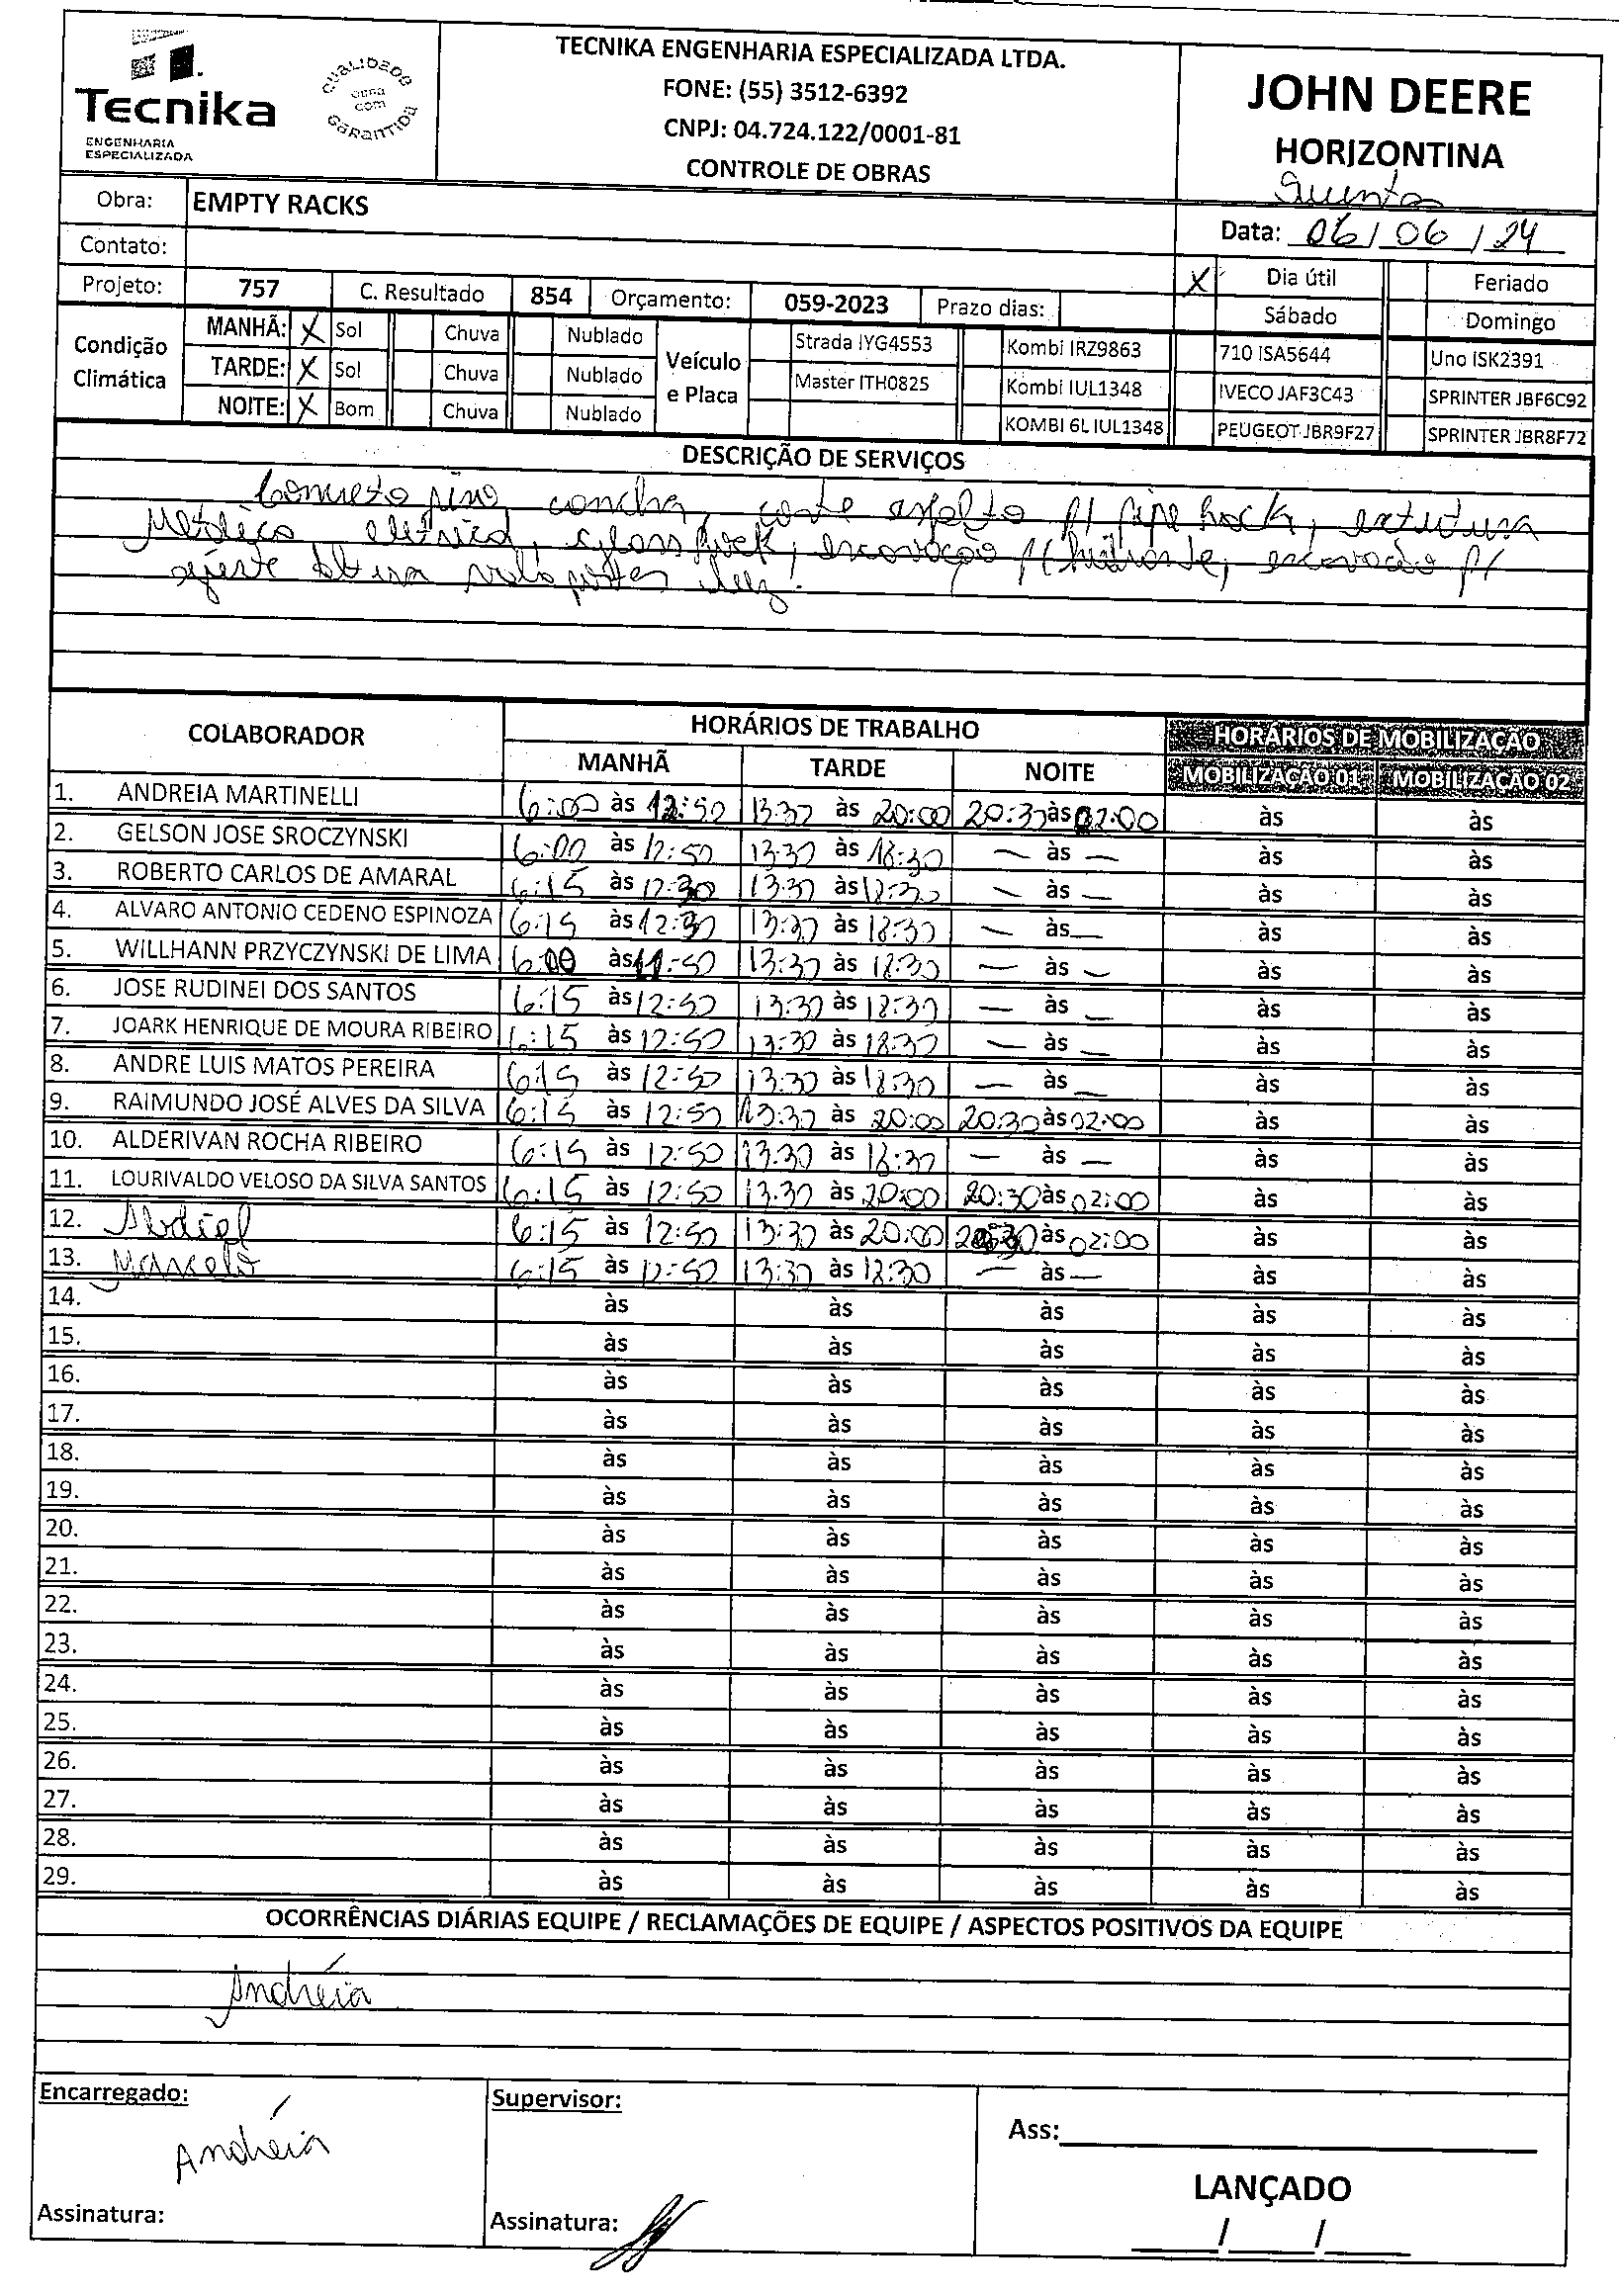 Tecnika
ENGENHARIA
ESPECIALIZADA
QUALIDADE
OBRA
COM
GARANTIDA
TECNIKA ENGENHARIA ESPECIALIZADA LTDA.
FONE: (55) 3512-6392
CNPJ: 04.724.122/0001-81
CONTROLE DE OBRAS
JOHN DEERE
HORIZONTINA
Quinta
Obra: EMPTY RACKS
Data: 06/06/24
Contato:
X Dia útil Feriado
Projeto: 757 C. Resultado 854 Orçamento: 059-2023 Prazo dias:
Sábado Domingo
Condição Climática
MANHÃ: X Sol Chuva Nublado
TARDE: X Sol Chuva Nublado
NOITE: X Bom Chuva Nublado
Veículo e Placa
Strada IYG4553 Kombi IRZ9863 710 ISA5644 Uno ISK2391
Master ITH0825 Kombi IUL1348 IVECO JAF3C43 SPRINTER JBF6C92
KOMBI 6L IUL1348 PEUGEOT JBR9F27 SPRINTER JBR8F72
DESCRIÇÃO DE SERVIÇOS
concha, corte asfalto p/ pipe rack, estrutura
elétrica, escavação p/ hidrante, escavação p/
COLABORADOR HORÁRIOS DE TRABALHO HORÁRIOS DE MOBILIZAÇÃO
MANHÃ TARDE NOITE MOBILIZAÇÃO 01 MOBILIZAÇÃO 02
1. ANDREIA MARTINELLI 6:00 às 12:50 13:30 às 20:00 20:30 às 02:00 às às
2. GELSON JOSE SROCZYNSKI 6:00 às 12:50 13:30 às 18:30 — às — às às
3. ROBERTO CARLOS DE AMARAL 6:15 às 12:30 13:30 às 18:30 — às — às às
4. ALVARO ANTONIO CEDENO ESPINOZA 6:15 às 12:30 13:30 às 18:30 — às — às às
5. WILLHANN PRZYCZYNSKI DE LIMA 6:00 às 11:50 13:30 às 18:30 — às — às às
6. JOSE RUDINEI DOS SANTOS 6:15 às 12:50 13:30 às 18:30 — às — às às
7. JOARK HENRIQUE DE MOURA RIBEIRO 6:15 às 12:50 13:30 às 18:30 — às — às às
8. ANDRE LUIS MATOS PEREIRA 6:15 às 12:50 13:30 às 18:30 — às — às às
9. RAIMUNDO JOSÉ ALVES DA SILVA 6:15 às 12:50 13:30 às 20:00 20:30 às 02:00 às às
10. ALDERIVAN ROCHA RIBEIRO 6:15 às 12:50 13:30 às 18:30 — às — às às
11. LOURIVALDO VELOSO DA SILVA SANTOS 6:15 às 12:50 13:30 às 20:00 20:30 às 02:00 às às
12. Abdiel 6:15 às 12:50 13:30 às 20:00 20:30 às 02:00 às às
13. Marcelo 6:15 às 12:50 13:30 às 18:30 — às — às às
14. às às às às às
15. às às às às às
16. às às às às às
17. às às às às às
18. às às às às às
19. às às às às às
20. às às às às às
21. às às às às às
22. às às às às às
23. às às às às às
24. às às às às às
25. às às às às às
26. às às às às às
27. às às às às às
28. às às às às às
29. às às às às às
OCORRÊNCIAS DIÁRIAS EQUIPE / RECLAMAÇÕES DE EQUIPE / ASPECTOS POSITIVOS DA EQUIPE
Andréia
Encarregado: Supervisor:
Andréia
Ass:
LANÇADO
Assinatura: Assinatura:
/ /